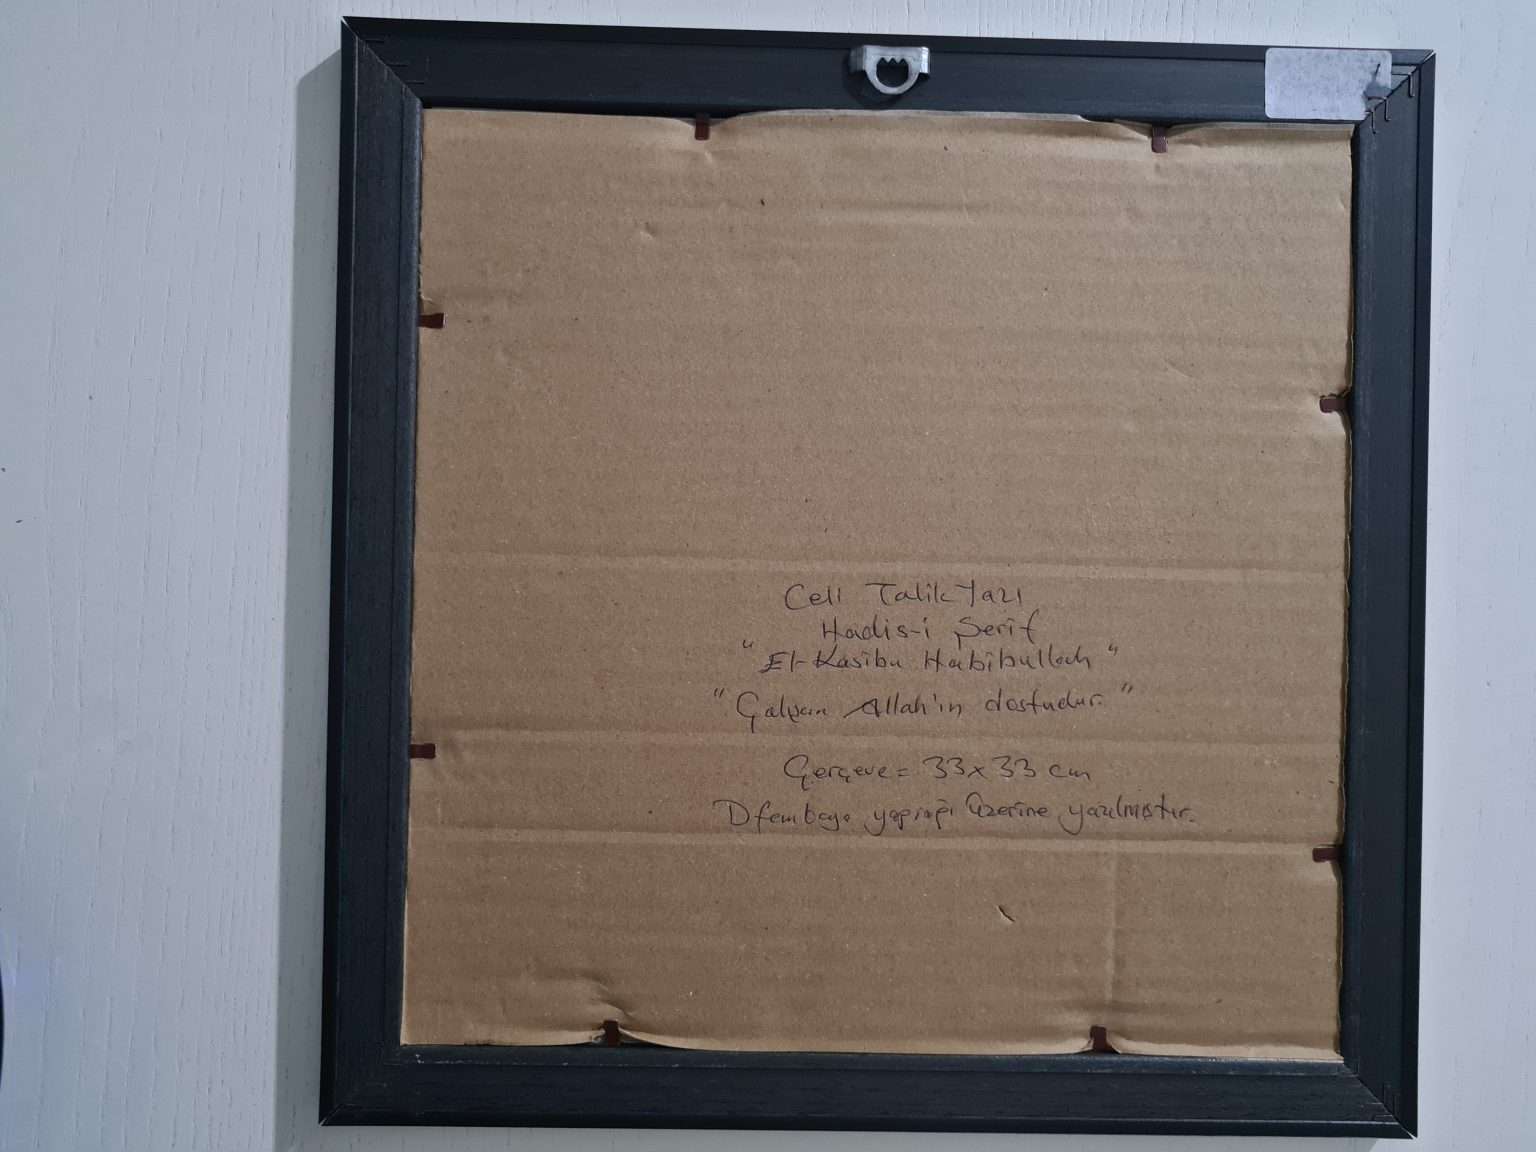 Celi Talik Yazı
Hadis-i Şerif
"El-Kasibu Habibullah"
"Çalışan Allah'ın dostudur."
Çerçeve = 33x33 cm
Difembaya yaprağı üzerine yazılmıştır.